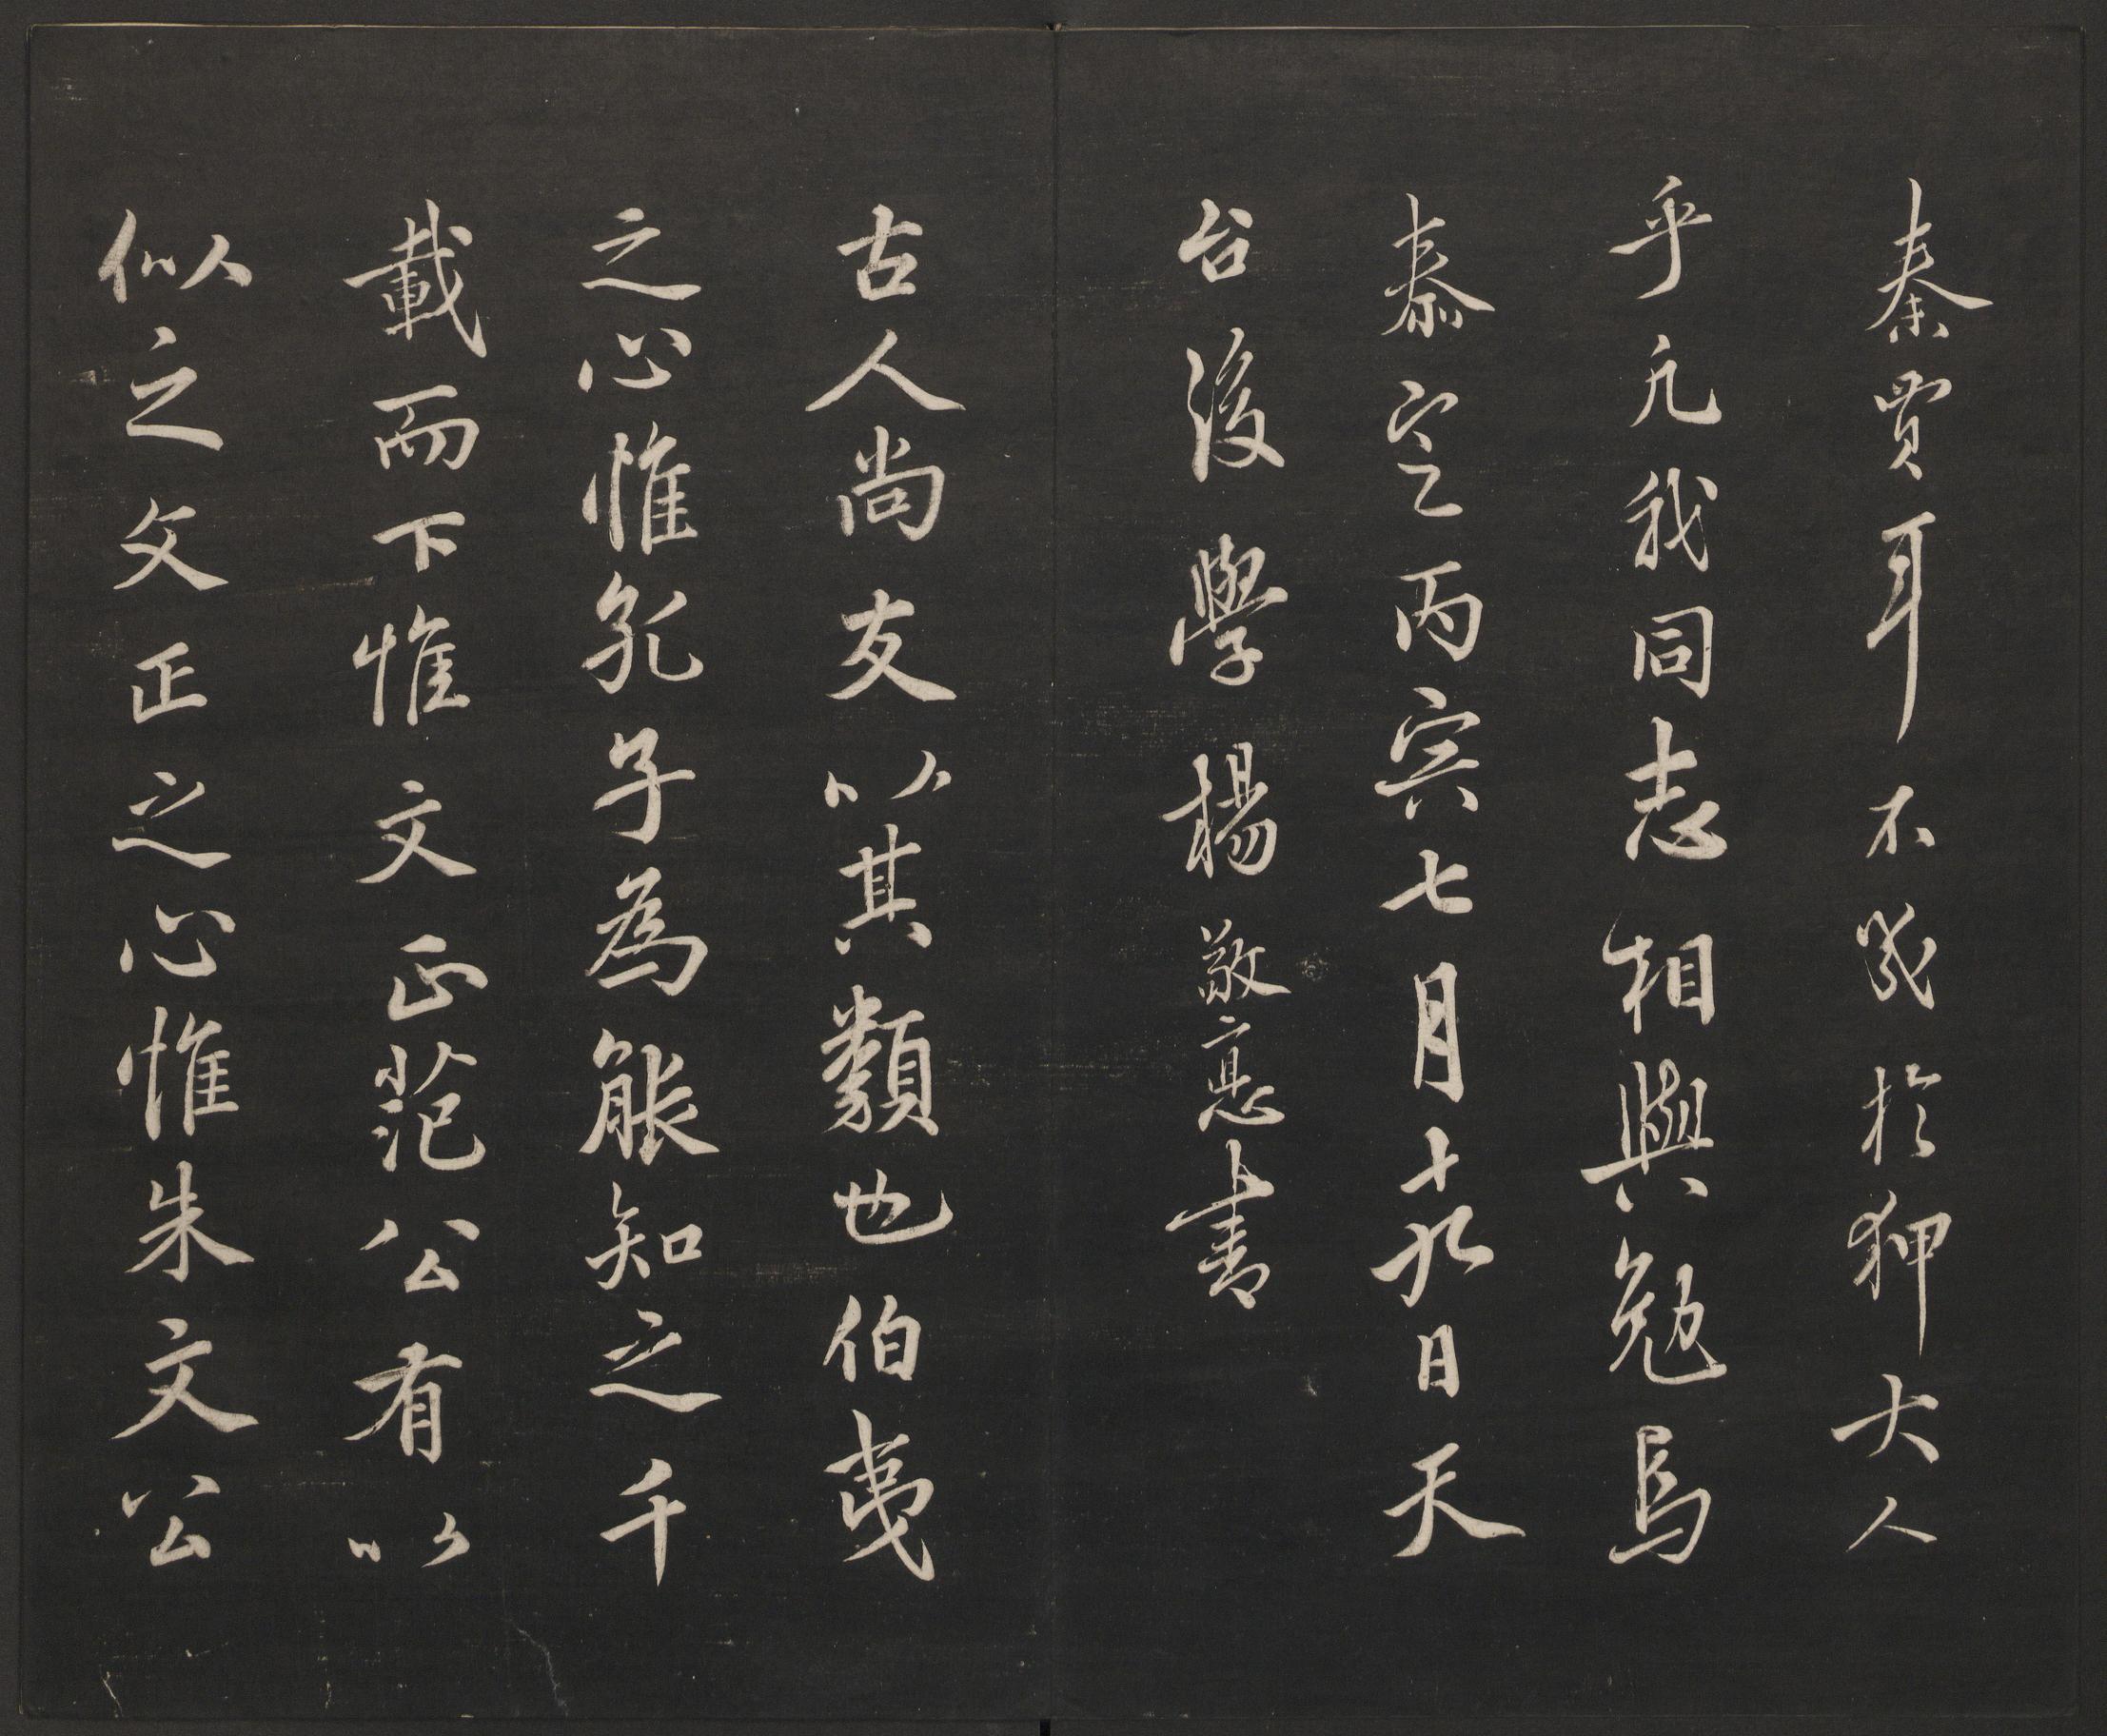 秦賈耳不幾於狎大人
乎凢我同志相與勉焉
泰定丙寅七月十九日天
台後學楊敬悳書
古人尚友以其類也伯夷
之心惟孔子為能知之千
載而下惟文正范公有以
似之文正之心惟朱文公